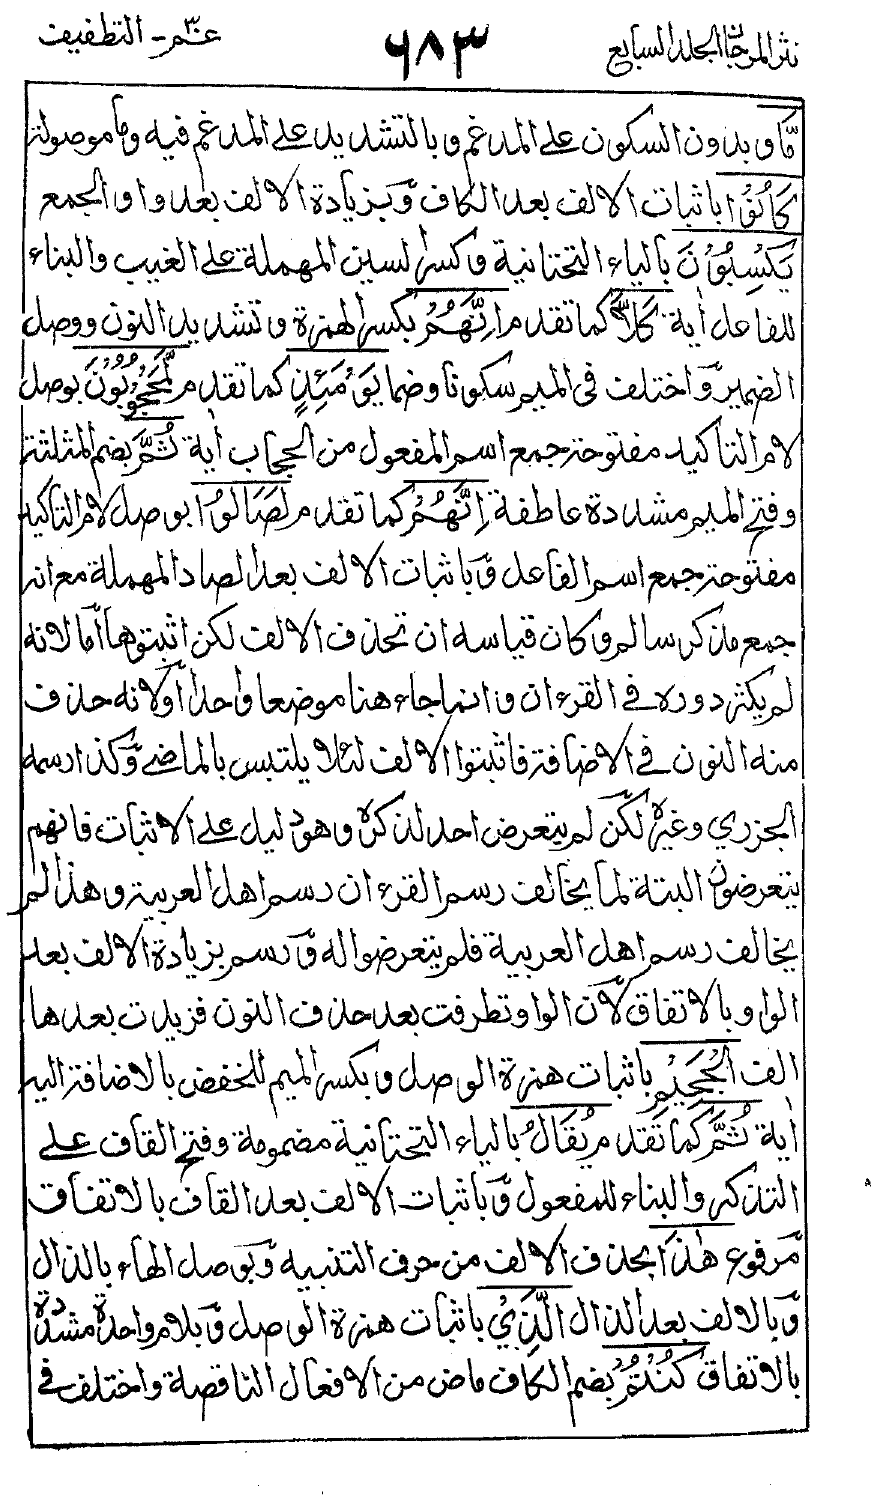 نثر المرجان المجلد السابع
٦٨٣
عمّ - التطفيف
مَّا وبدون السكون على المدغم وبالتشديد على المدغم فيه وما موصولة
كَانُوْا باثبات الالف بعد الكاف وبزيادة الالف بعد واو الجمع
يَكْسِبُوْنَ بالياء التحتانية وكسر السين المهملة على الغيب والبناء
للفاعل اٰية كَلَّا كما تقدم اِنَّهُمْ بكسر الهمزة وتشديد النون ووصل
الضمير واختلف فى الميم سكونا وضما يَوْمَئِذٍ كما تقدم لَّمَحْجُوْبُوْنَ بوصل
لام التاكيد مفتوحة جمع اسم المفعول من الحجاب اٰية ثُمَّ بضم المثلثة
وفتح الميم مشددة عاطفة اِنَّهُمْ كما تقدم لَصَالُوا بوصل لام التاكيد
مفتوحة جمع اسم الفاعل وباثبات الالف بعد الصاد المهملة مع انه
جمع مذكر سالم وكان قياسه ان تحذف الالف لكن اثبتوها اما لانه
لم يكثر دوره في القرءان وانما جاء هنا موضعا واحدا او لانه حذف
منه النون في الاضافة فاثبتوا الالف لئلا يلتبس بالماضي وكذا رسمه
الجزري وغيره لكن لم يتعرض احد لذكره وهو دليل على الاثبات فانهم
يتعرضون البتة لما يخالف رسم القرءان رسم اهل العربية وهذا لم
يخالف رسم اهل العربية فلم يتعرضوا له ورسم بزيادة الالف بعد
الواو بالاتفاق لان الواو تطرفت بعد حذف النون فزيدت بعدها
الف الْجَحِيْمِ باثبات همزة الوصل وبكسر الميم للخفض بالاضافة اليه
اٰية ثُمَّ كما تقدم يُقَالُ بالياء التحتانية مضمومة وفتح القاف على
التذكير والبناء للمفعول وباثبات الالف بعد القاف بالاتفاق
مرفوع هٰذَا بحذف الالف من حرف التنبيه وبوصل الهاء بالذال
وبالالف بعد الذال الَّذِيْ باثبات همزة الوصل وبلام واحدة مشددة
بالاتفاق كُنْتُمْ بضم الكاف ماض من الافعال الناقصة واختلف في